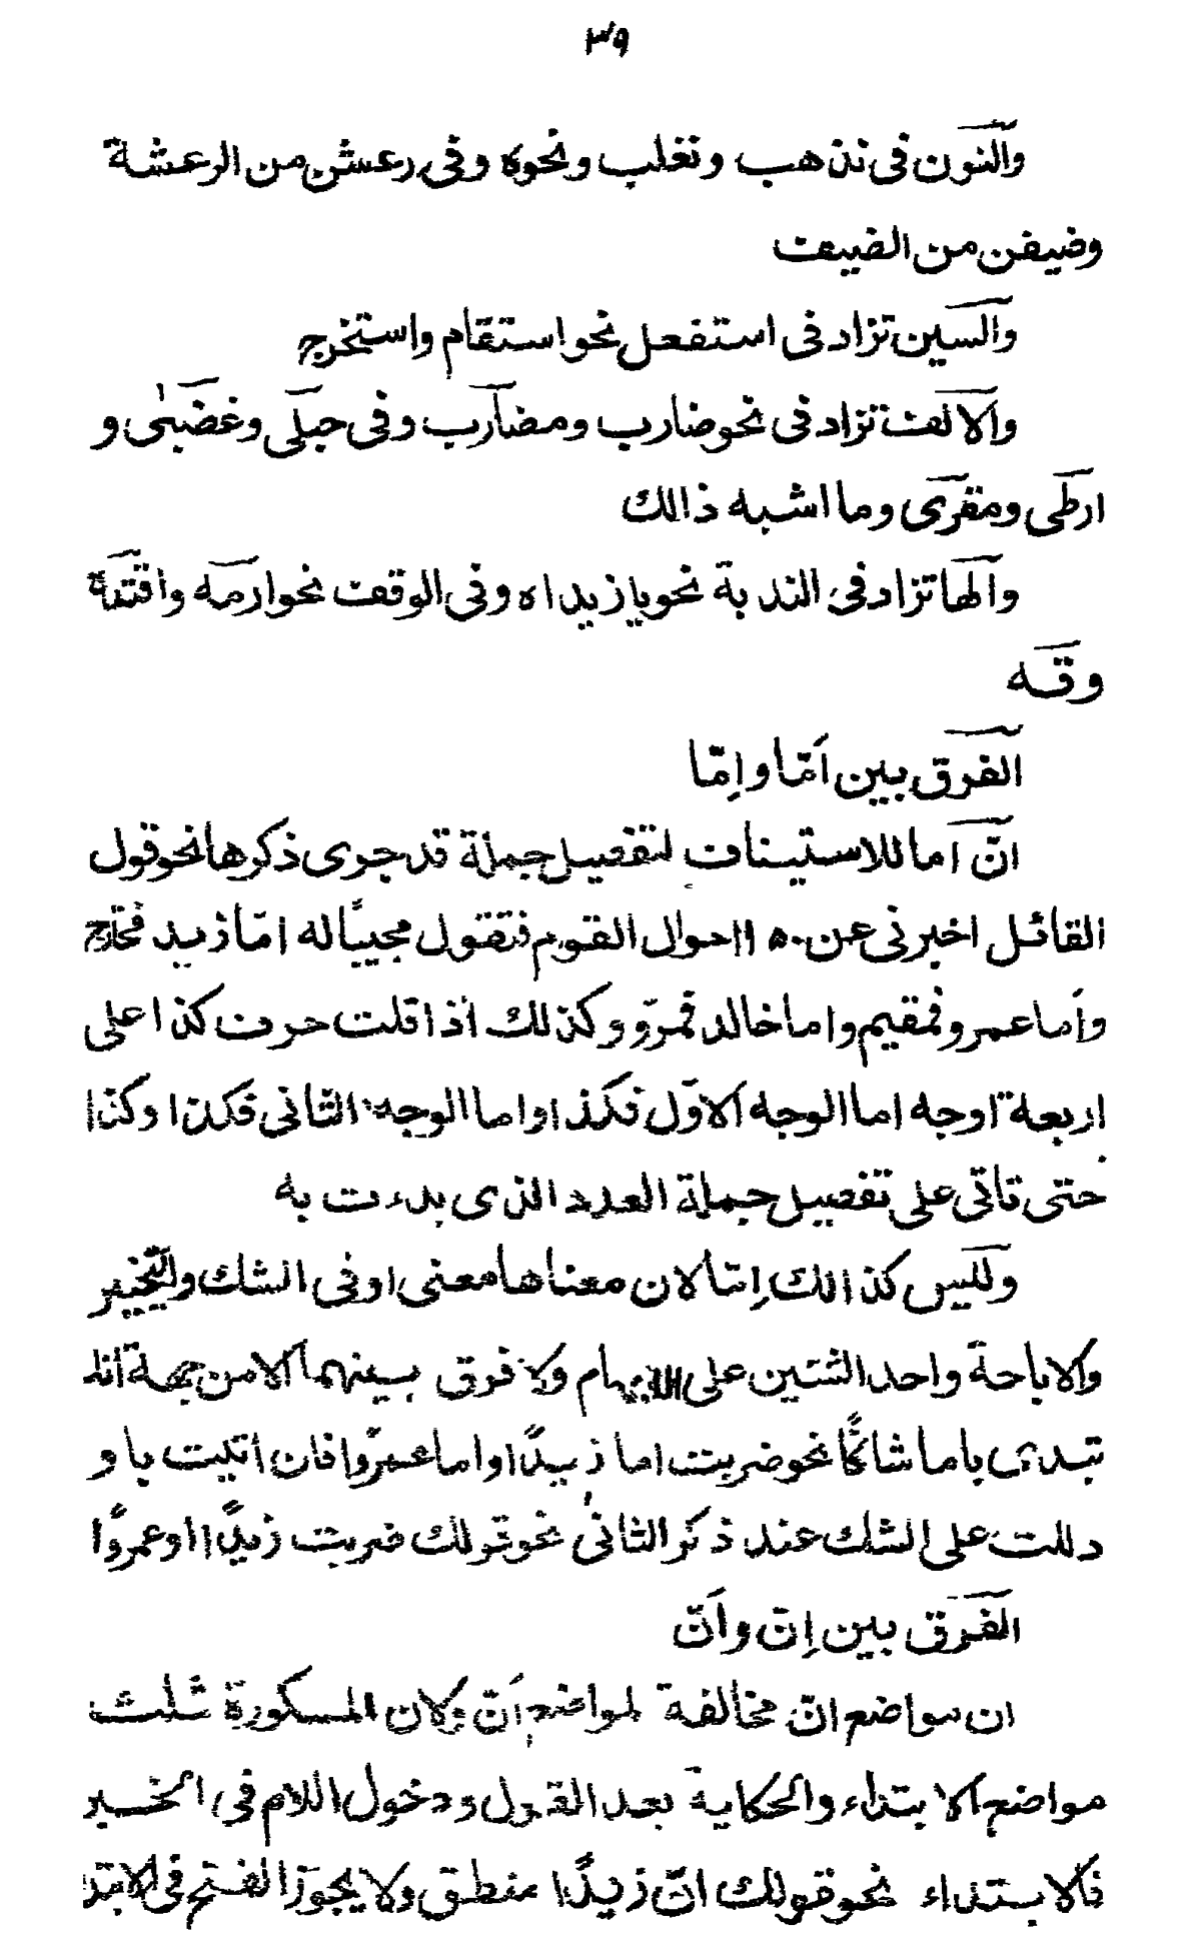 ٣٩
والنون فى نذهب ونغلب ونحوه وفى رعشن من الرعشة
وضيفن من الضيف
والسين تزاد فى استفعل نحو استقام واستخرج
والالف تزاد فى نحو ضارب ومضارب وفى حبلى وغضبىٰ و
ارطى ومقرى وما اشبه ذالك
والها تزاد فى الندبة نحو يا زيداه وفى الوقف نحو ارمه واقتده
وقه
الفرق بين اَمّا واِمّا
انّ اما للاستيناف لتفصيل جملة قد جرى ذكرها نحو قول
القائل اخبرنى عن احوال القوم فتقول مجيبًا له امّا زيد فخارج
واَما عمرو فمقيم واما خالد فمرّو وكذلك اذا قلت حرف كذا على
اربعة اوجه اما الوجه الاوّل فكذا واما الوجه الثانى فكذا وكذا
حتى تاتى على تفصيل جملة العدد الذى بدءت به
وليس كذالك اِمّا لان معناها معنى او فى الشك والتخيير
والاباحة واحد الشئين على الابهام ولا فرق بينهما الا من جهة انك
تبدى باما شاكًّا نحو ضربت اما زيدًا واما عمرًوا فان اتيت باو
دللت على الشك عند ذكر الثانى نحو قولك ضربت زيدًا اوعمرًوا
الفرق بين اِنّ واَنّ
ان مواضع انّ مخالفة لمواضع اَنّ ولان المسكورة ثلث
مواضع الابتداء والحكاية بعد القول ودخول اللام فى الخبر
فالابتداء نحو قولك انّ زيدًا منطلق ولا يجوز الفتح فى الابتدا